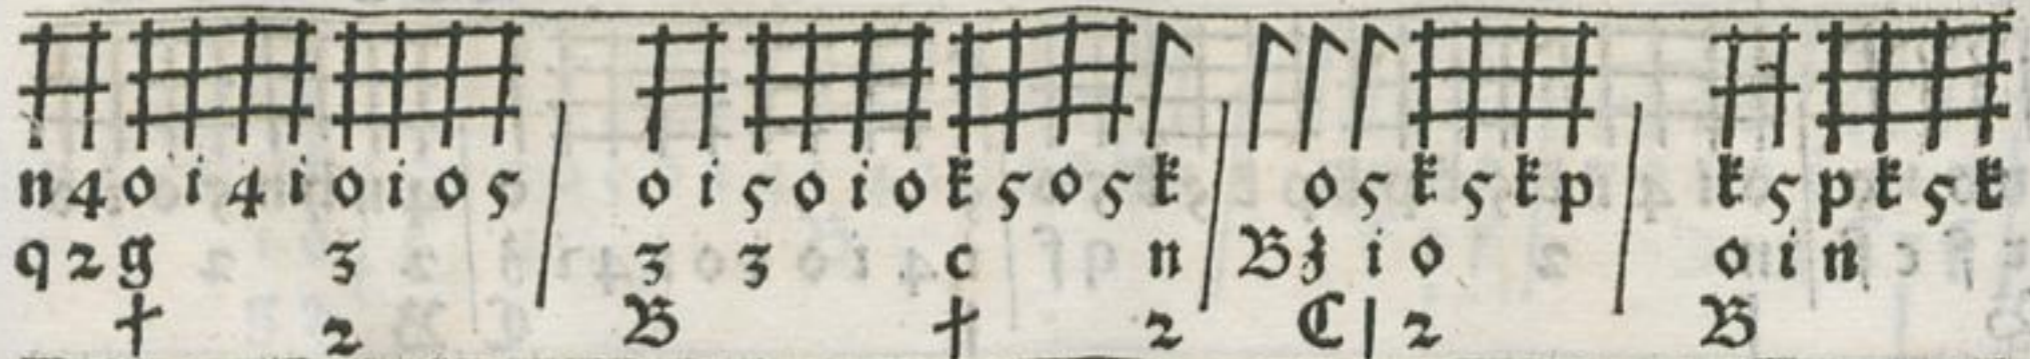 n 4 o i 4 i o i o 5 o i 5 o i o k 5 o 5 k o 5 k 5 k p k 5 p k 5 k
q 2 g 3 3 3 c n B 3 i o o i n
† 2 B † 2 C | 2 B